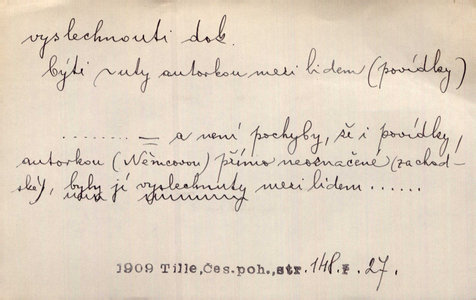 vyslechnouti dok.
býti ~nuty autorkou mezi lidem (povídky)
........ = a není pochyby, že i povídky,
autorkou (Němcovou) přímo neoznačené (zachod-
ské), byly jí vyslechnuty mezi lidem ......
1909 Tille, Čes. poh., str. 148. ř. 27.